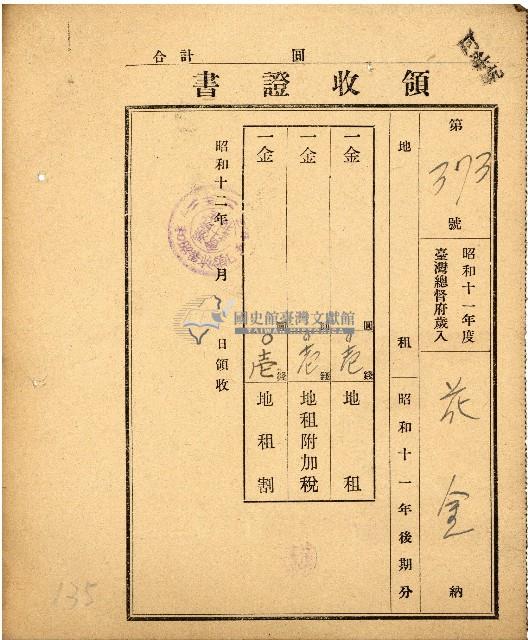 合計　圓
領收證書
第 373 號
昭和十一年度
臺灣總督府歲入
金 納
地租　昭和十一年後期分
一金　圓　壱錢　地租
一金　圓　壱錢　地租附加稅
一金　圓 0 壱錢　地租割
昭和十二年　月　日領收
國史館臺灣文獻館
TAIWAN HISTORICA
135